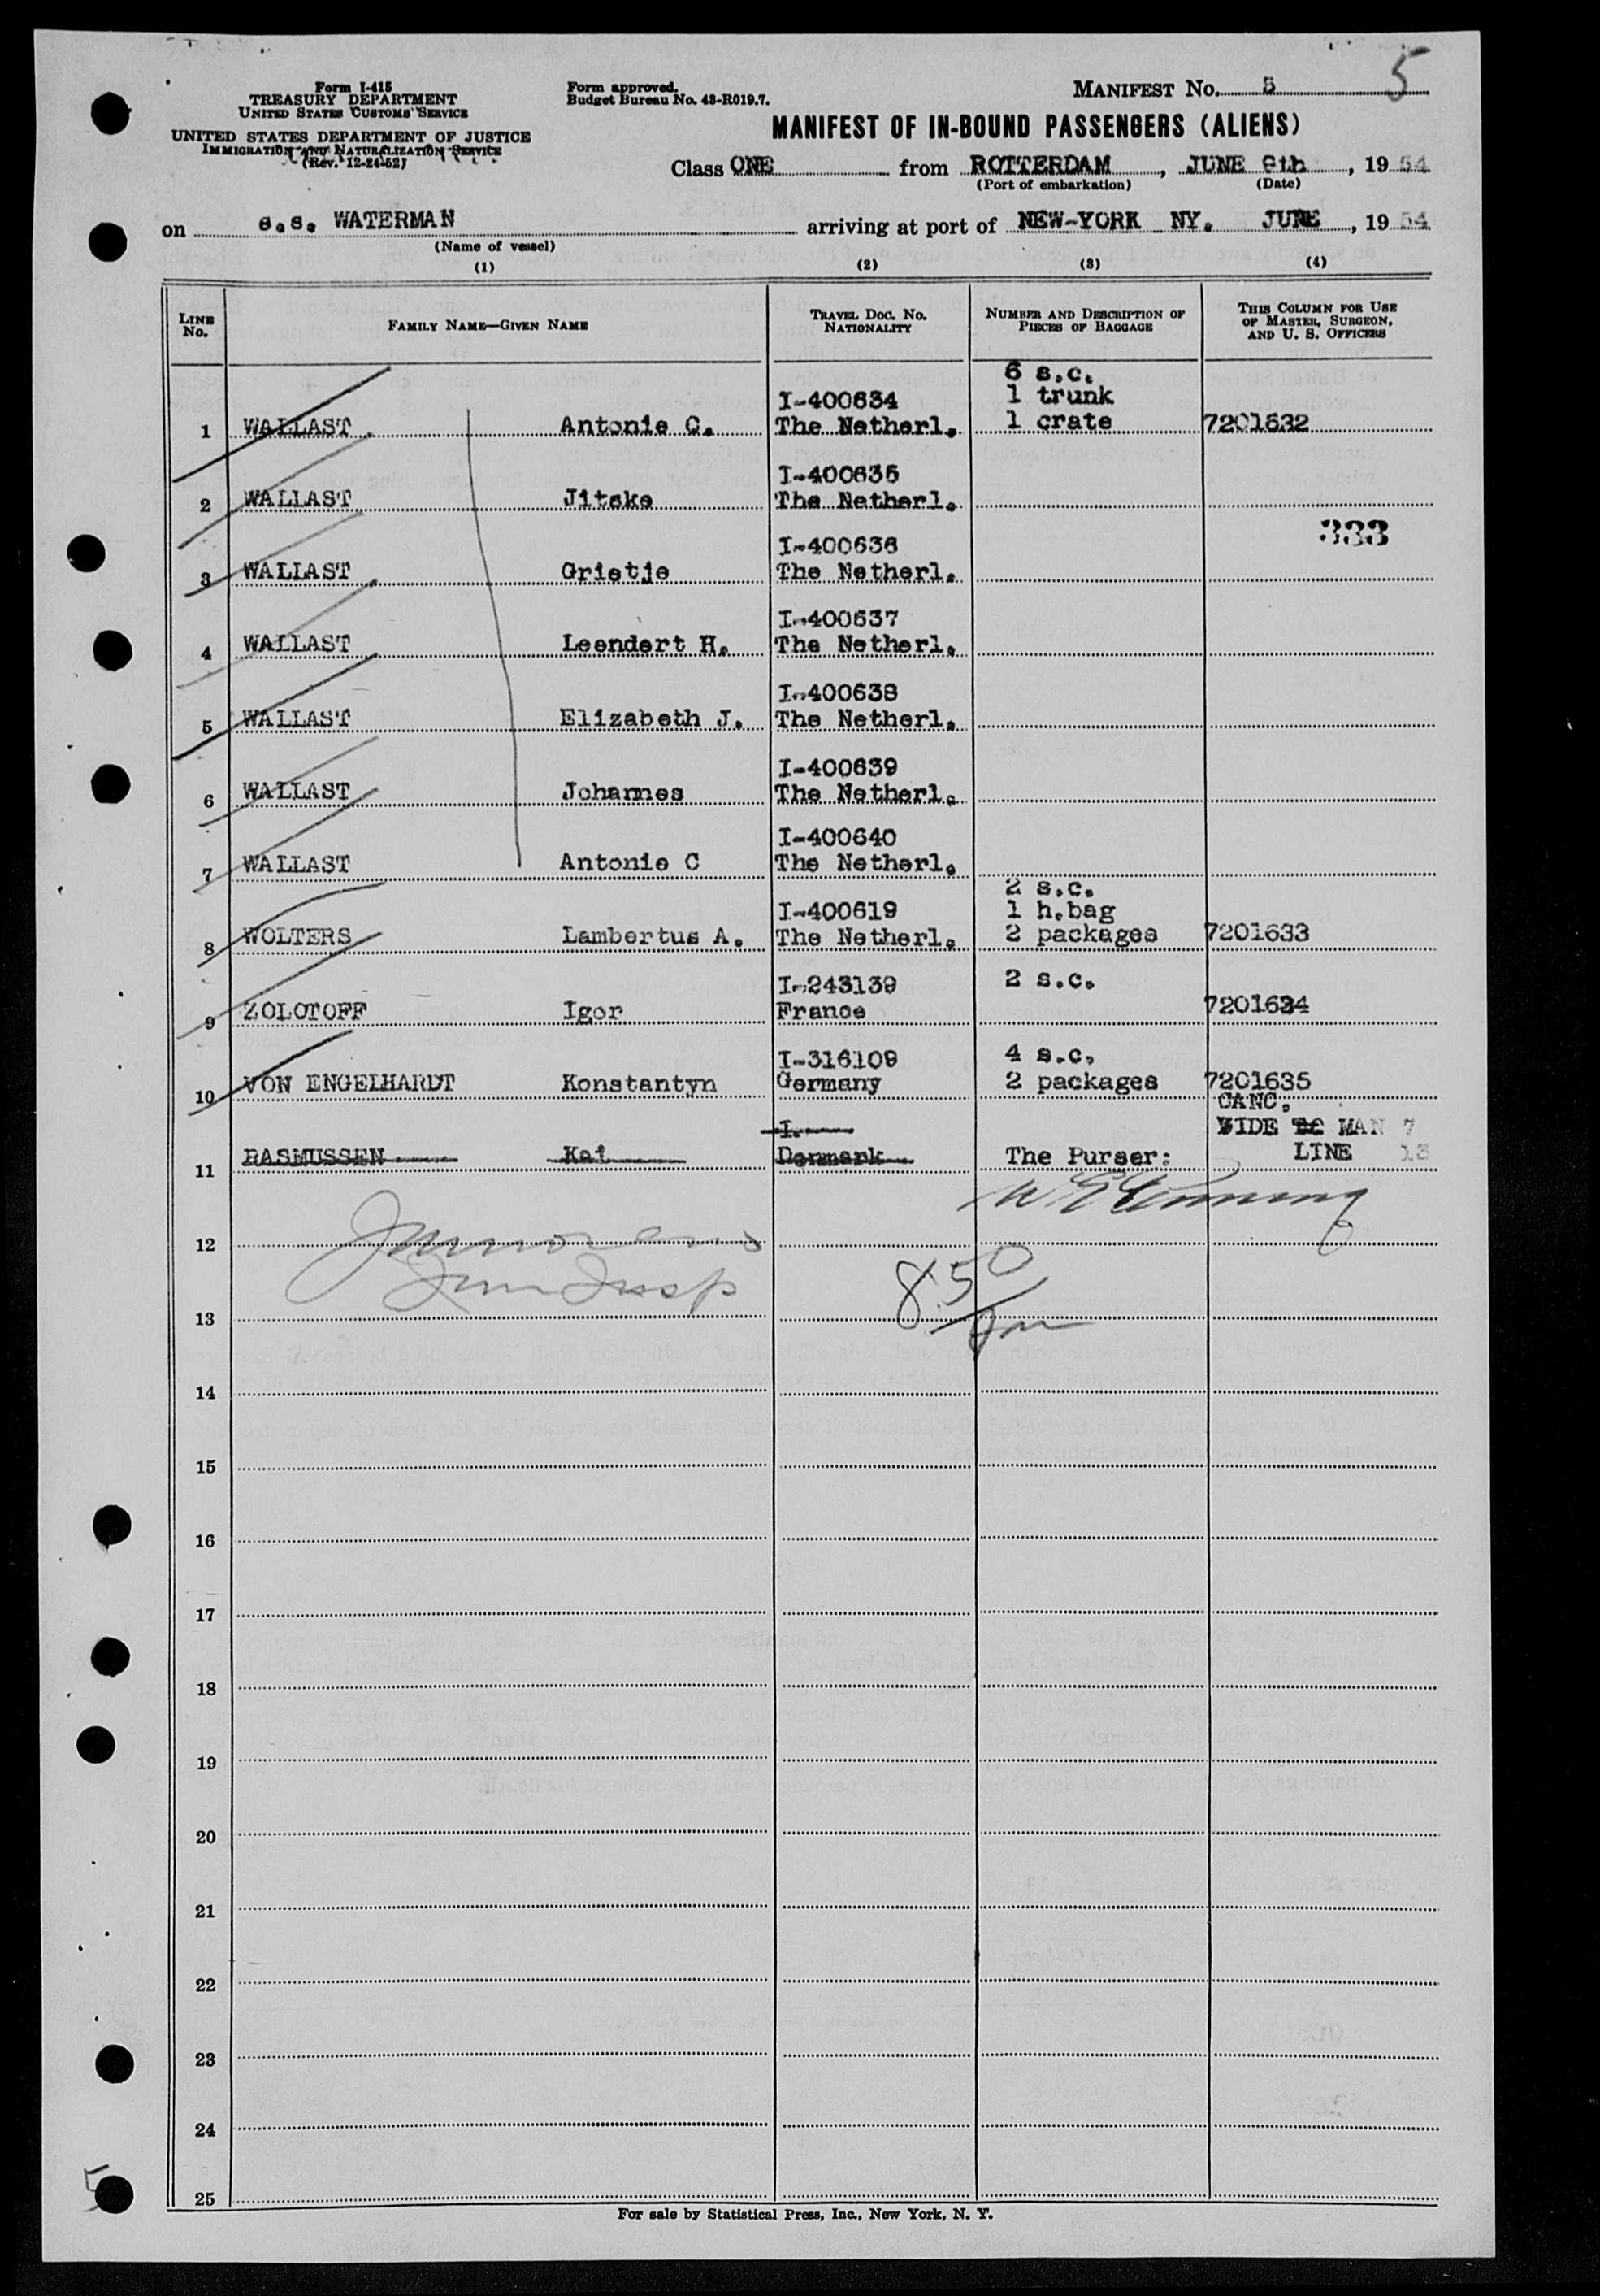 Form I-415
TREASURY DEPARTMENT
UNITED STATES CUSTOMS SERVICE
UNITED STATES DEPARTMENT OF JUSTICE
IMMIGRATION AND NATURALIZATION SERVICE
(Rev. 12-24-52)
Form approved.
Budget Bureau No. 43-R019.7.
MANIFEST No. 5
5
MANIFEST OF IN-BOUND PASSENGERS (ALIENS)
Class ONE from ROTTERDAM, JUNE 8th, 1954
(Port of embarkation) (Date)
on s.s. WATERMAN arriving at port of NEW-YORK NY. JUNE, 1954
(Name of vessel)
(1) (2) (3) (4)
LINE No. FAMILY NAME—GIVEN NAME TRAVEL DOC. NO. NATIONALITY NUMBER AND DESCRIPTION OF PIECES OF BAGGAGE THIS COLUMN FOR USE OF MASTER, SURGEON, AND U. S. OFFICERS
6 s.c.
I-400634 1 trunk
1 WALLAST Antonie C. The Netherl. 1 crate 7201632
I-400635
2 WALLAST Jitske The Netherl.
333
I-400636
3 WALLAST Grietje The Netherl.
I-400637
4 WALLAST Leendert H. The Netherl.
I-400638
5 WALLAST Elizabeth J. The Netherl.
I-400639
6 WALLAST Johannes The Netherl.
I-400640
7 WALLAST Antonie C The Netherl.
2 s.c.
I-400619 1 h.bag
8 WOLTERS Lambertus A. The Netherl. 2 packages 7201633
I-243139 2 s.c.
9 ZOLOTOFF Igor France 7201634
I-316109 4 s.c.
10 VON ENGELHARDT Konstantyn Germany 2 packages 7201635
CANC.
I. VIDE MAN 7
11 RASMUSSEN Kai Denmark The Purser: LINE 13
12
850
13
14
15
16
17
18
19
20
21
22
23
24
25
For sale by Statistical Press, Inc., New York, N. Y.
5